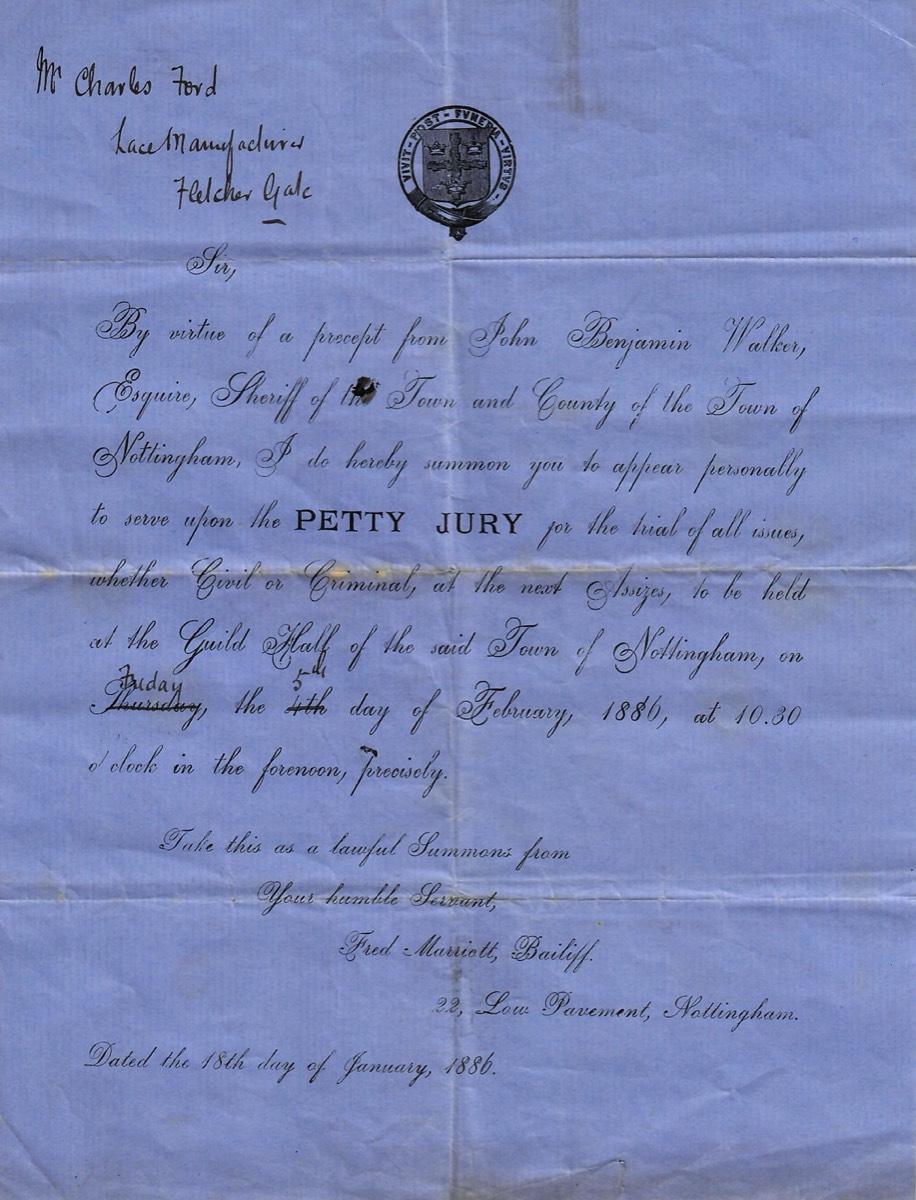 Mr Charles Ford
Lace Manufacturer
Fletcher Gate
VIVIT · POST · FVNERA · VIRTVS
Sir,
By virtue of a precept from John Benjamin Walker,
Esquire, Sheriff of the Town and County of the Town of
Nottingham, I do hereby summon you to appear personally
to serve upon the PETTY JURY for the trial of all issues,
whether Civil or Criminal, at the next Assizes, to be held
at the Guild Hall of the said Town of Nottingham, on
Friday 5th
Thursday, the 4th day of February, 1886, at 10.30
o'clock in the forenoon, precisely.
Take this as a lawful Summons from
Your humble Servant,
Fred Marriott, Bailiff.
22, Low Pavement, Nottingham.
Dated the 18th day of January, 1886.